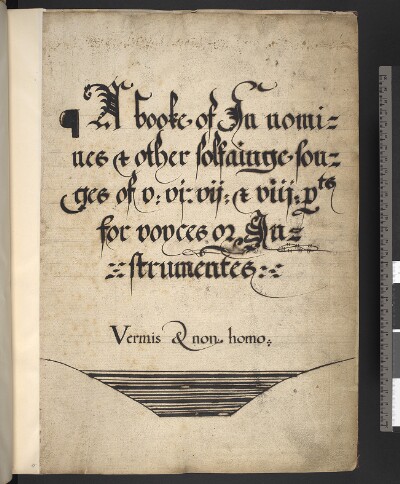 ¶ A booke of In nomi=
nes & other solfainge son=
ges of v: vi: vij: & viij: pts
for voyces or In=
strumentes
Vermis & non homo: